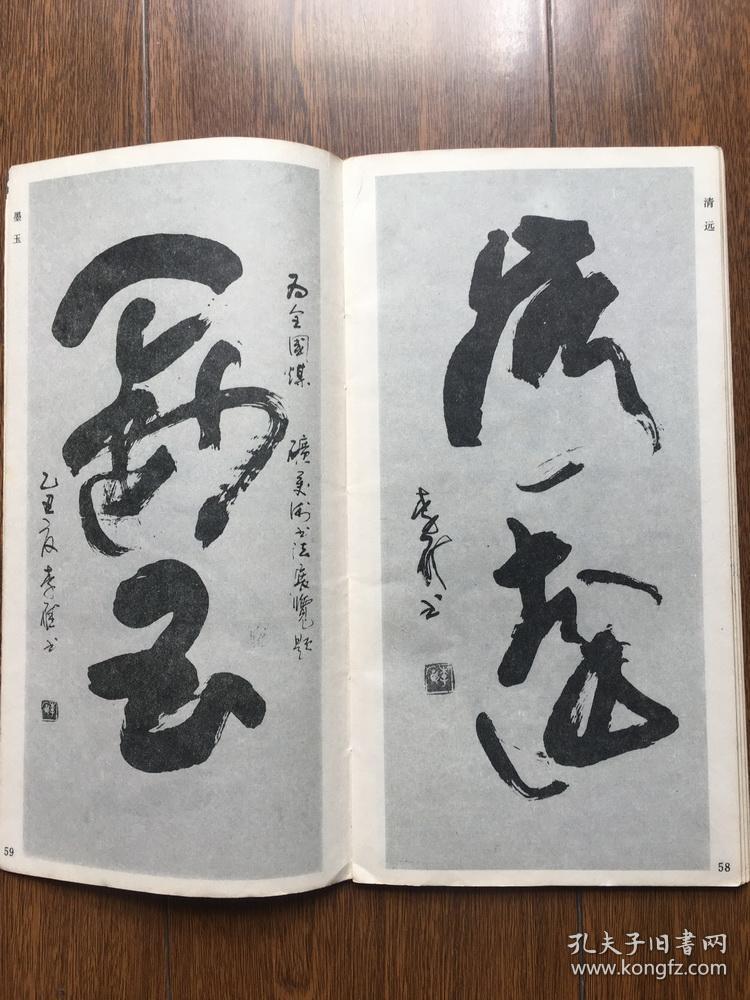 清远
清远
李雁书
58
墨玉
墨玉
为全国煤
礦美術书法展览题
乙丑夏李雁书
59
孔夫子旧書网
www.kongfz.com